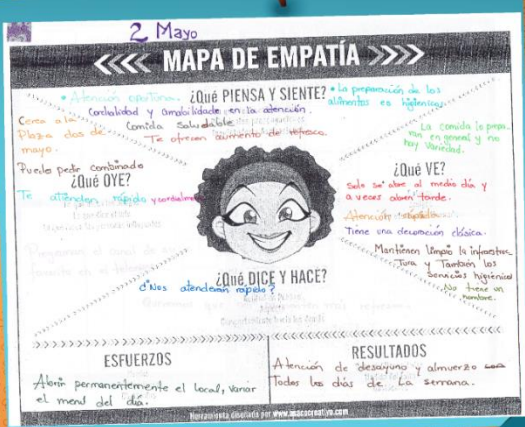 2 Mayo
MAPA DE EMPATÍA
¿Qué PIENSA Y SIENTE?
• Atención oportuna.
Cordialidad y amabilidade en la atención.
Comida Saludable
Te ofrecen aumento de refresco.
• La preparación de los
alimentos es higiénica
Cerca a la
Plaza dos de
mayo.
Puedo pedir combinado
¿Qué OYE?
Te atienden rápido y cordialmente
La comida la prepa_
ran en general y no
hay variedad.
¿Qué VE?
Solo se abre al medio día y
a veces abren tarde.
Atención rápida
Tiene una decoración clásica.
Mantienen limpio la infraestruc_
tura y También los
Servicios higiénicos
No tiene un
nombre.
¿Qué DICE Y HACE?
¿Nos atenderán rápido?
ESFUERZOS
Abrir permanentemente el local, variar
el menú del día.
RESULTADOS
Atención de desayuno y almuerzo
Todos los días de La semana.
Herramienta diseñada por www.asacocreativa.com